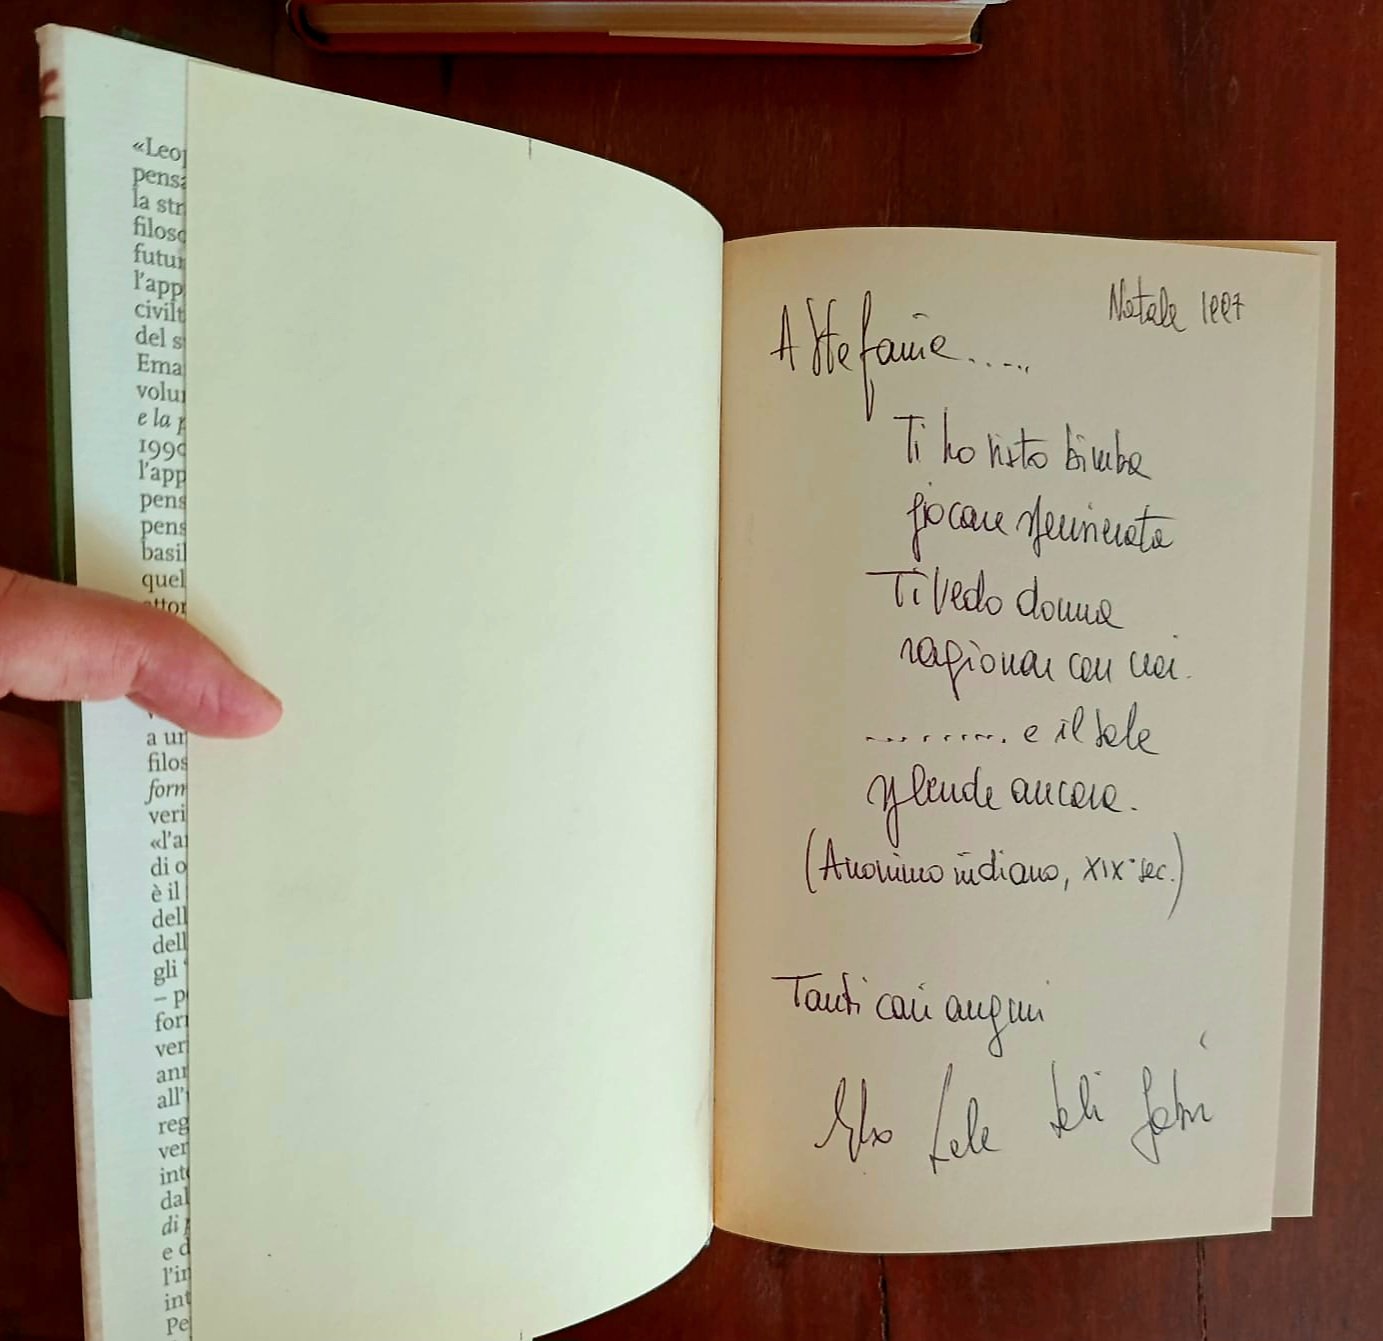 «Leop
pensa
la str
filoso
futur
l'app
civilt
del s
Ema
volu
e la p
1990
l'app
pens
pens
basil
quel
attor
a un
filos
form
veri
«l'ar
di o
è il
dell
dell
gli '
– p
for
ver
ann
all'
reg
ver
int
dal
di p
e d
l'in
int
Pe
Natale 1997
A Stefania.....
Ti ho visto bimba
giocare spensierata
Ti vedo donna
ragionar con noi.
......... e il sole
splende ancora.
(Anonimo indiano, XIX° sec.)
Tanti cari auguri
Lele